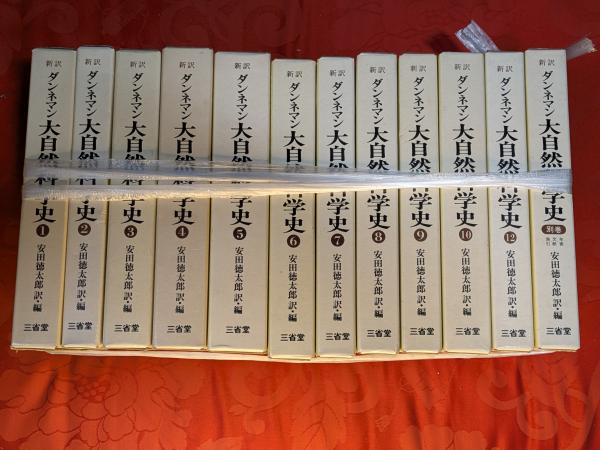 新訳 ダンネマン 大自然科学史 1 安田徳太郎 訳・編 三省堂
新訳 ダンネマン 大自然科学史 2 安田徳太郎 訳・編 三省堂
新訳 ダンネマン 大自然科学史 3 安田徳太郎 訳・編 三省堂
新訳 ダンネマン 大自然科学史 4 安田徳太郎 訳・編 三省堂
新訳 ダンネマン 大自然科学史 5 安田徳太郎 訳・編 三省堂
新訳 ダンネマン 大自然科学史 6 安田徳太郎 訳・編 三省堂
新訳 ダンネマン 大自然科学史 7 安田徳太郎 訳・編 三省堂
新訳 ダンネマン 大自然科学史 8 安田徳太郎 訳・編 三省堂
新訳 ダンネマン 大自然科学史 9 安田徳太郎 訳・編 三省堂
新訳 ダンネマン 大自然科学史 10 安田徳太郎 訳・編 三省堂
新訳 ダンネマン 大自然科学史 12 安田徳太郎 訳・編 三省堂
新訳 ダンネマン 大自然科学史 別巻 安田徳太郎 訳・編 三省堂